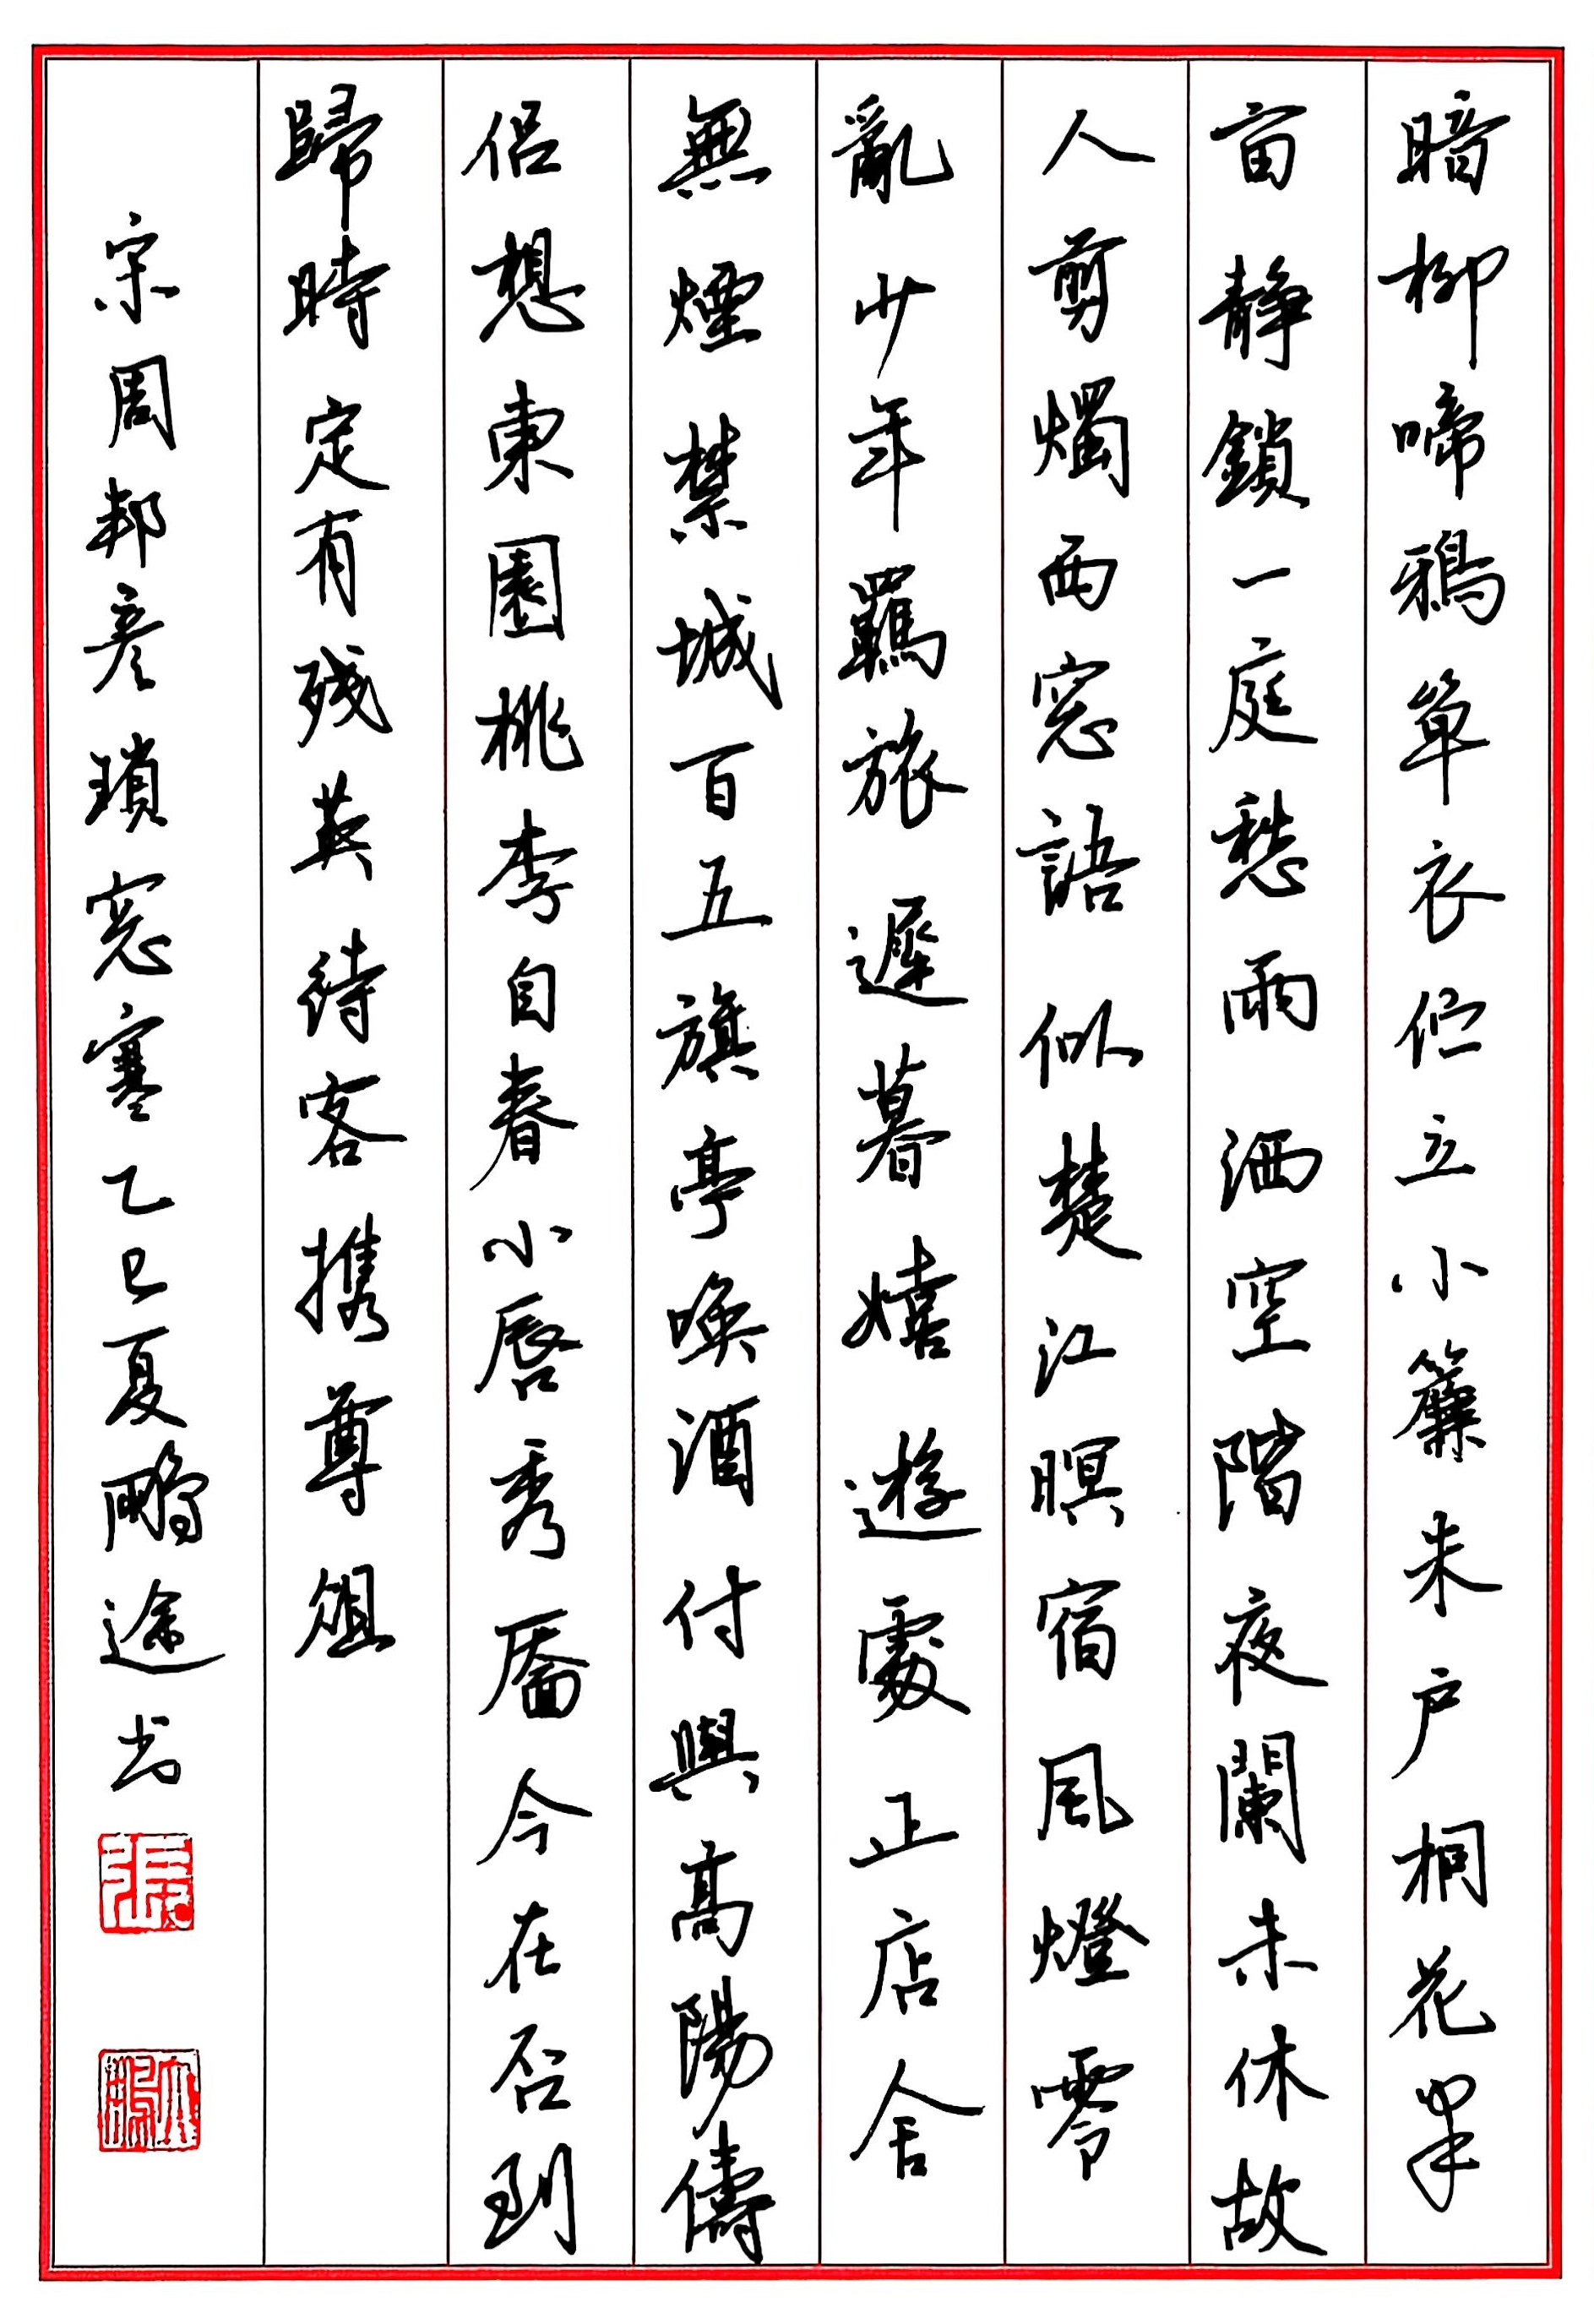 暗柳啼鴉單衣伫立小簾朱户桐花半
亩静鎖一庭愁雨洒空階夜闌未休故
人剪燭西窓語似楚江暝宿風燈零
亂少年羈旅遲暮嬉遊處正店舍
無煙禁城百五旗亭喚酒付與高陽儔
侣想東園桃李自春小唇秀靨今在否到
歸時定有残英待客携尊俎
宋周邦彦瑣窓寒乙巳夏鵬途书